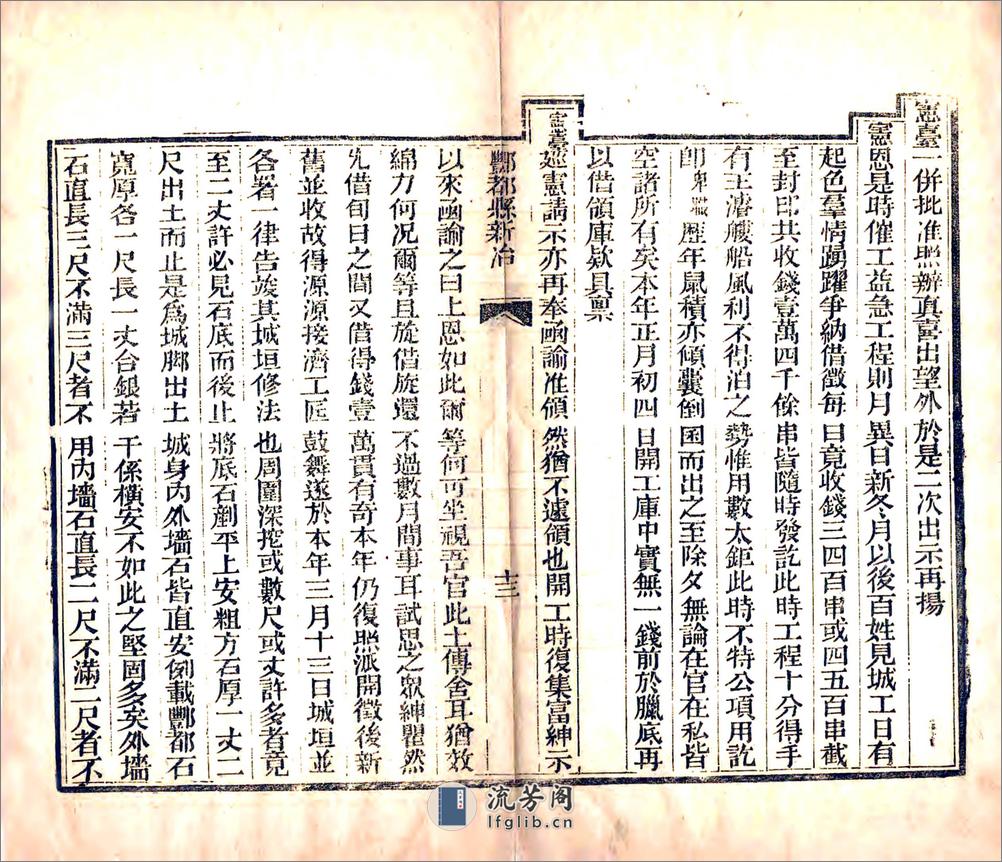 憲臺一併批准照辦真喜出望外於是二次出示再揚
憲恩是時催工益急工程則月異日新冬月以後百姓見城工日有
起色羣情踴躍爭納借徵每日竟收錢三四百串或四五百串截
至封印共收錢壹萬四千餘串皆隨時發訖此時工程十分得手
有王濬艘船風利不得泊之勢惟用數太鉅此時不特公項用訖
即卑職歷年鼠積亦傾囊倒囷而出之至除夕無論在官在私皆
空諸所有矣本年正月初四日開工庫中實無一錢前於臘底再
以借領庫欵具禀
憲臺憲請示亦再奉函諭准領然猶不遽領也開工時復集富紳示
酆都縣新冶
十三
以來函諭之曰上恩如此爾等何可坐視吾官此土傳舍耳猶效
綿力何况爾等且旋借旋還不過數月間事耳試思之眾紳瞿然
允借旬日之間又借得錢壹萬貫有奇本年仍復照派開徵後新
舊並收故得源源接濟工匠鼓舞遂於本年三月十三日城垣並
各署一律告竣其城垣修法也周圍深挖或數尺或丈許多者竟
至二丈許必見石底而後止將底石剷平上安粗方石厚一丈二
尺出土而止是爲城脚出土城身內外墙石皆直安例載酆都石
寬厚各一尺長一丈合銀若干係橫安不如此之堅固多矣外墻
石直長三尺不滿三尺者不用內墻石直長二尺不滿二尺者不
流芳阁
lfglib.cn